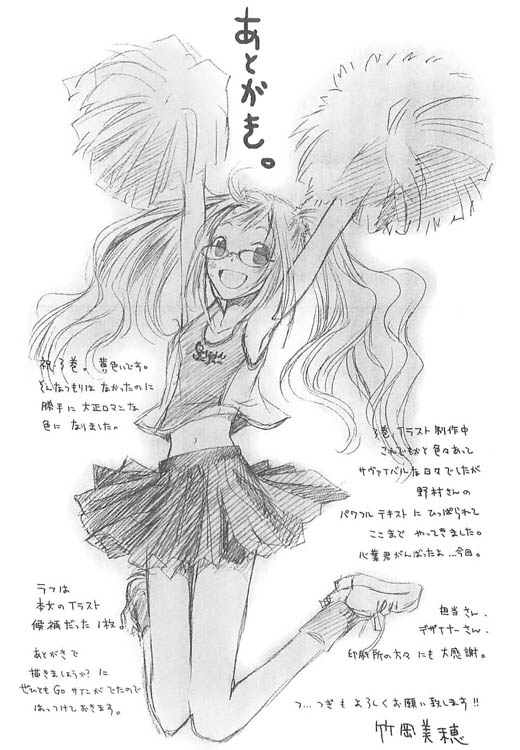 あとがき。
祝・3巻。黄色いです。
そんなつもりは なかったのに
勝手に 大正ロマンな
色に なりました。
3巻、イラスト制作中
これでもかと色々あって
サヴァイバルな日々でしたが
野村さんの
パワフルテキストに ひっぱられて
ここまで やってきました。
心葉君がんばったよ…今回。
ラフは
本文のイラスト
候補だった1枚。
あとがきで
描きましょうか？に
ぜひとも Go サインがでたので
はっつけておきます。
担当さん、
デザイナーさん、
印刷所の方々にも 大感謝。
つ…つぎも よろしくお願い致します!!
竹岡美穂